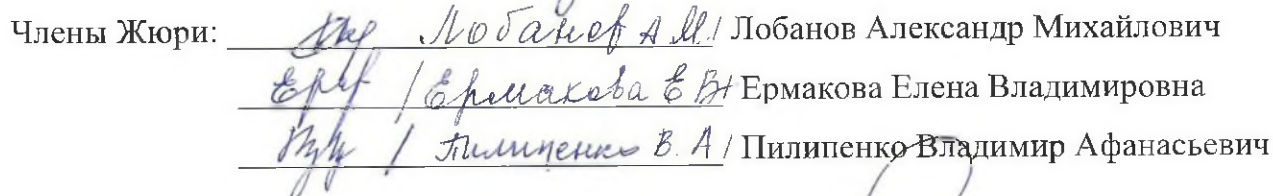 Члены Жюри: Лобанов А М / Лобанов Александр Михайлович
/ Ермакова Е В / Ермакова Елена Владимировна
/ Пилипенко В. А / Пилипенко Владимир Афанасьевич